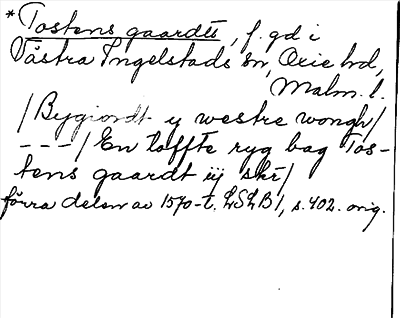 *Tostens gaardts, f. gd i
Västra Ingelstads sn, Oxie hd,
Malm. l.
/Bygiordt y westre wongh/
---/En toffte ryg bag Tos-
tens gaardt iij skr/
förra delen av 1570-t. LSLB1, s. 402. orig.